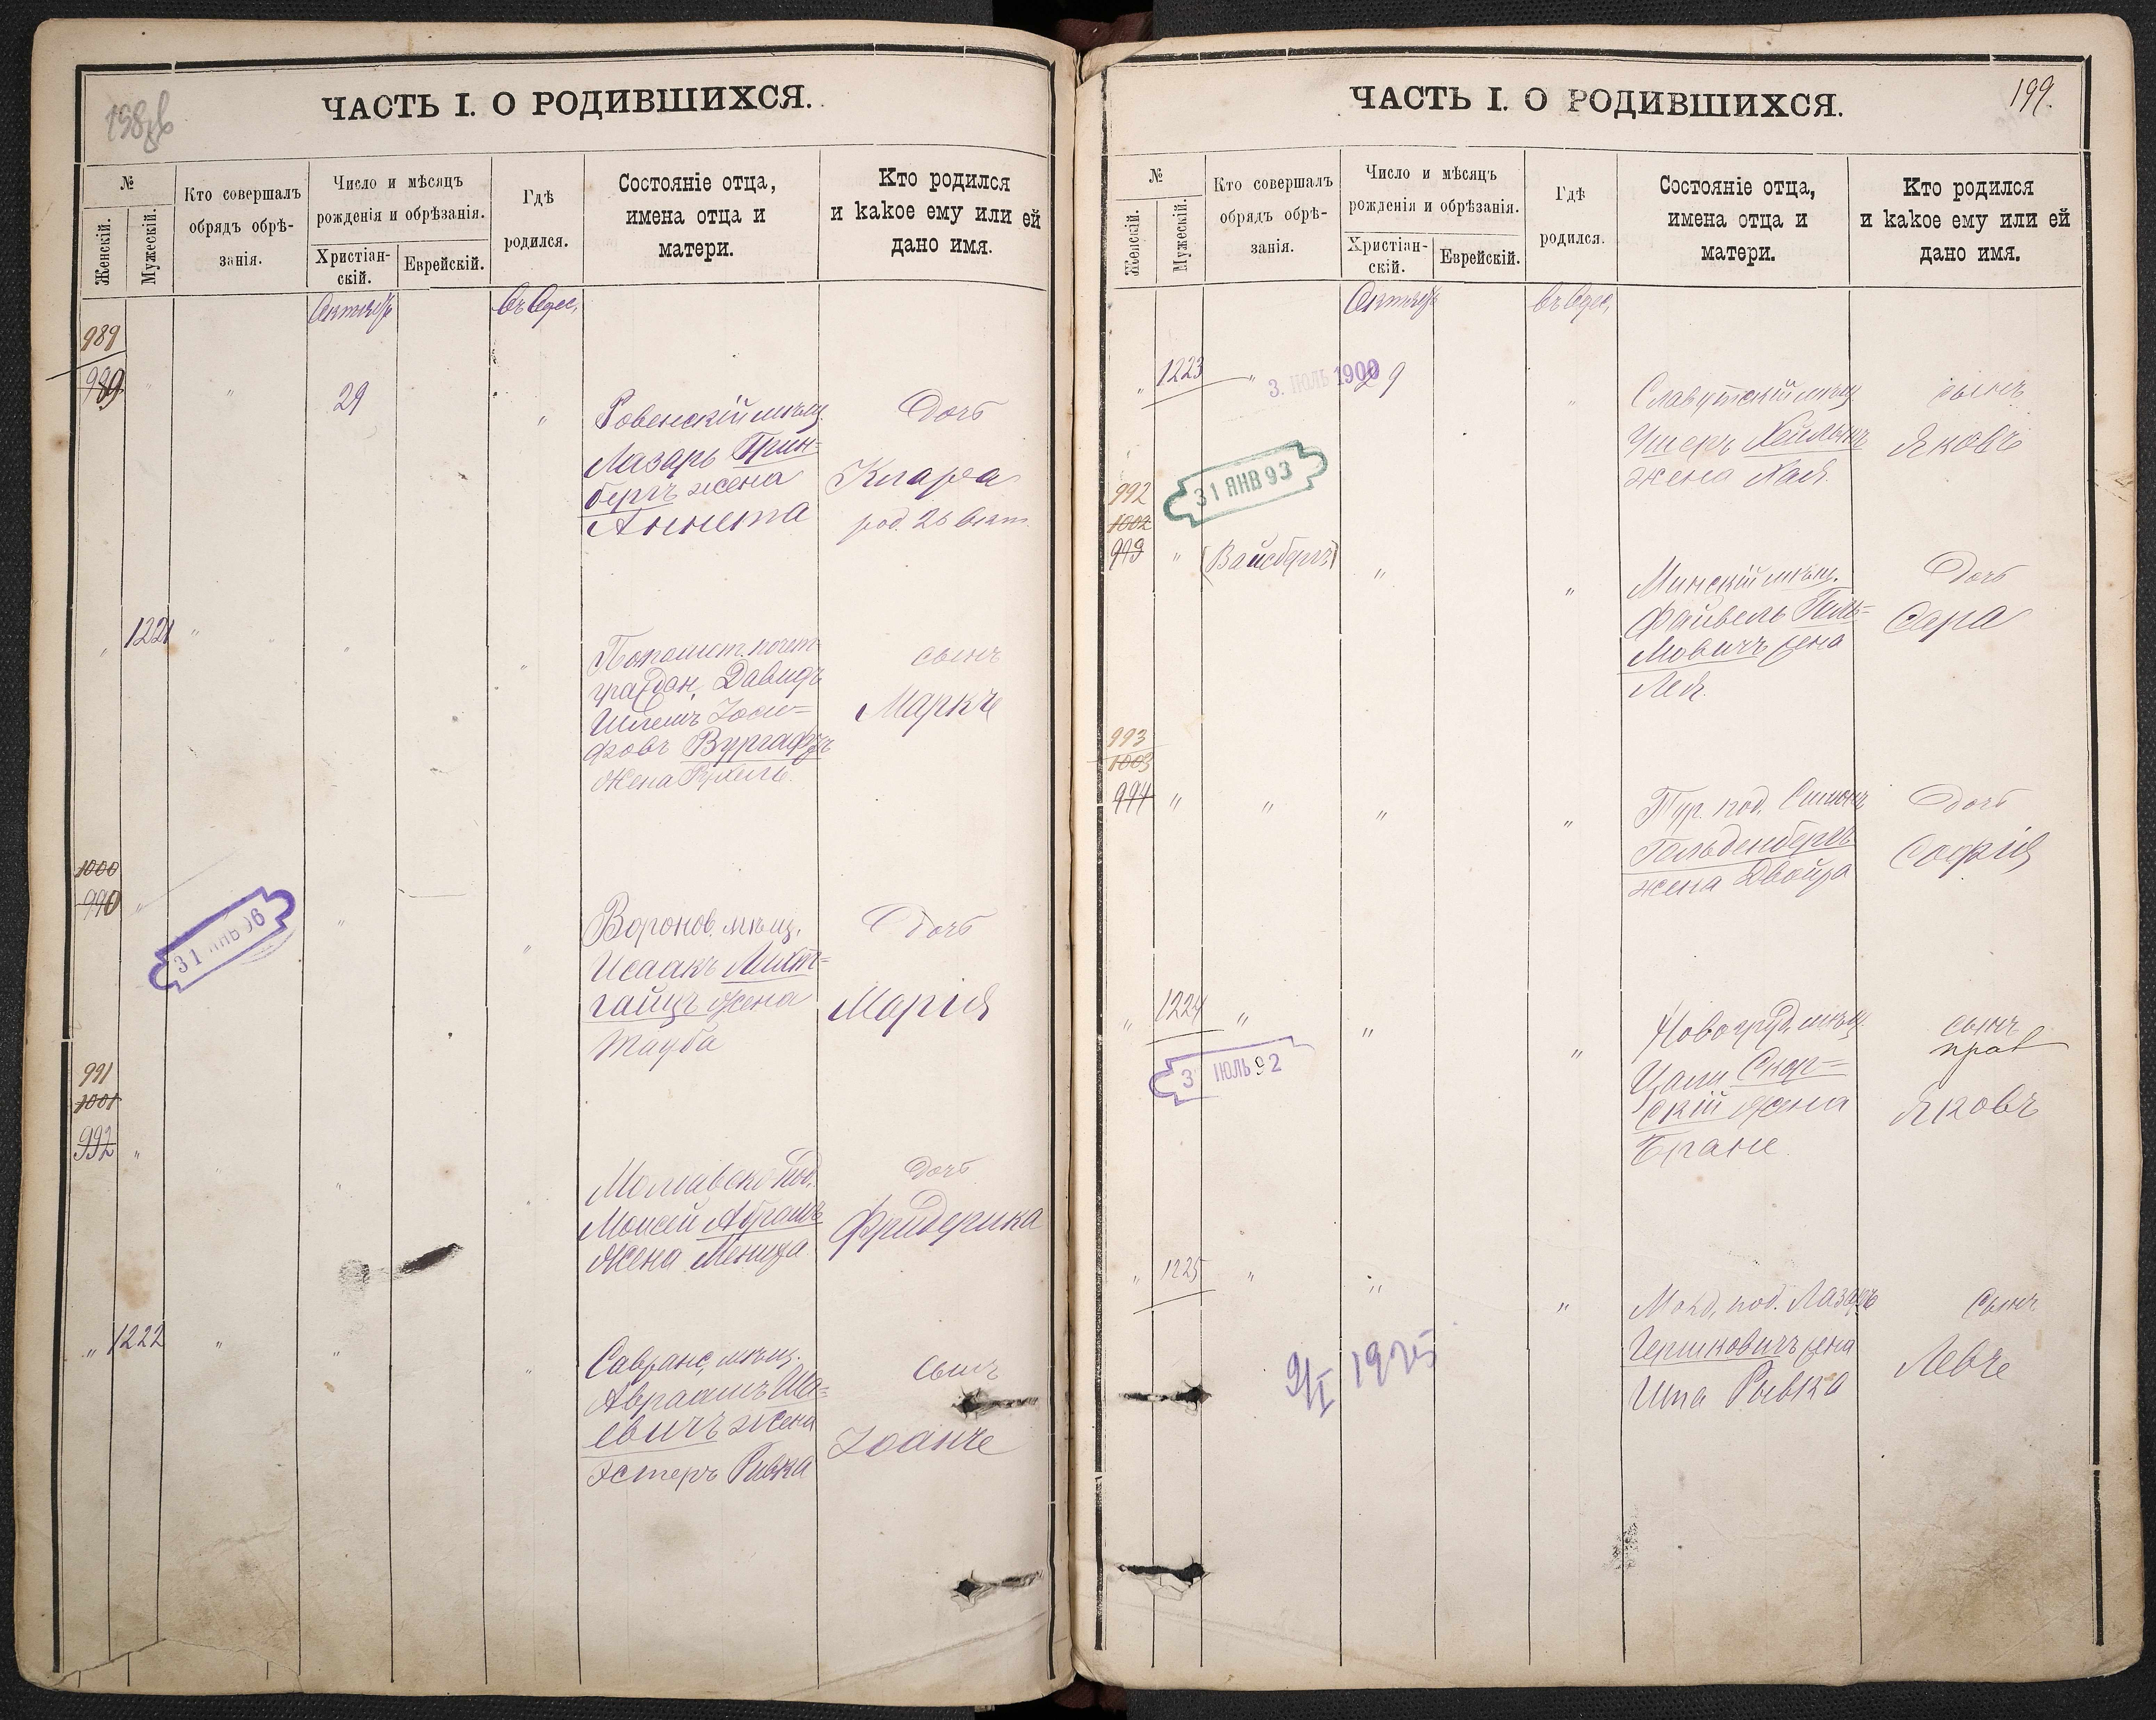 198об
ЧАСТЬ I. О РОДИВШИХСЯ.
№
Женскій.
Мужескій.
Кто совершалъ
обрядъ обрѣ-
занія.
Число и мѣсяцъ
рожденія и обрѣзанія.
Христіан-
скій.
Еврейскій.
Гдѣ
родился.
Состояніе отца,
имена отца и
матери.
Кто родился
и какое ему или ей
дано имя.
989
989
29
Ровенскій мѣщ.
Лазарь Грин=
бергъ жена
Аннета
Дочь
Клара
род. 26 Окт.
1221
Потомст. почет.
гражден. Давидъ
Жена Рухель.
сынъ
Маркъ
1000
990
31 ЯНВ 96
Воронов. мѣщ.
Исаакъ Лихт=
жена
Тауба
Дочь
Марія
991
1001
992
Моисей Абрамъ
Жена
Дочь
Фридерика
1222
Савранс. мѣщ.
Авраамъ Ша=
евичъ жена
Эстеръ Ривка
Сынъ
199.
ЧАСТЬ I. О РОДИВШИХСЯ.
№
Женскій.
Мужескій.
Кто совершалъ
обрядъ обрѣ-
занія.
Число и мѣсяцъ
рожденія и обрѣзанія.
Христіан-
скій.
Еврейскій.
Гдѣ
родился.
Состояніе отца,
имена отца и
матери.
Кто родился
и какое ему или ей
дано имя.
1223
3. ІЮЛЬ 1900
29
Славутскій мѣщ
Ушеръ
жена Хая.
сынъ
Яковъ
992
1002
993
31 ЯНВ 93
(Вайсбергъ)
Минскій мѣщ.
Файвель Галь=
мовичъ жена
Лея.
Дочь
Сара
993
1003
994
Тур. под.
Гольденбергъ
жена Двойра
Дочь
Софія
1224
3 ІЮЛЬ 92
Новогруд. мѣщ.
скій жена
сынъ
Яковъ
1225
9/I 1925
Молд. под. Лазарь
Гершковичъ жена
Ита Рывка
Сынъ